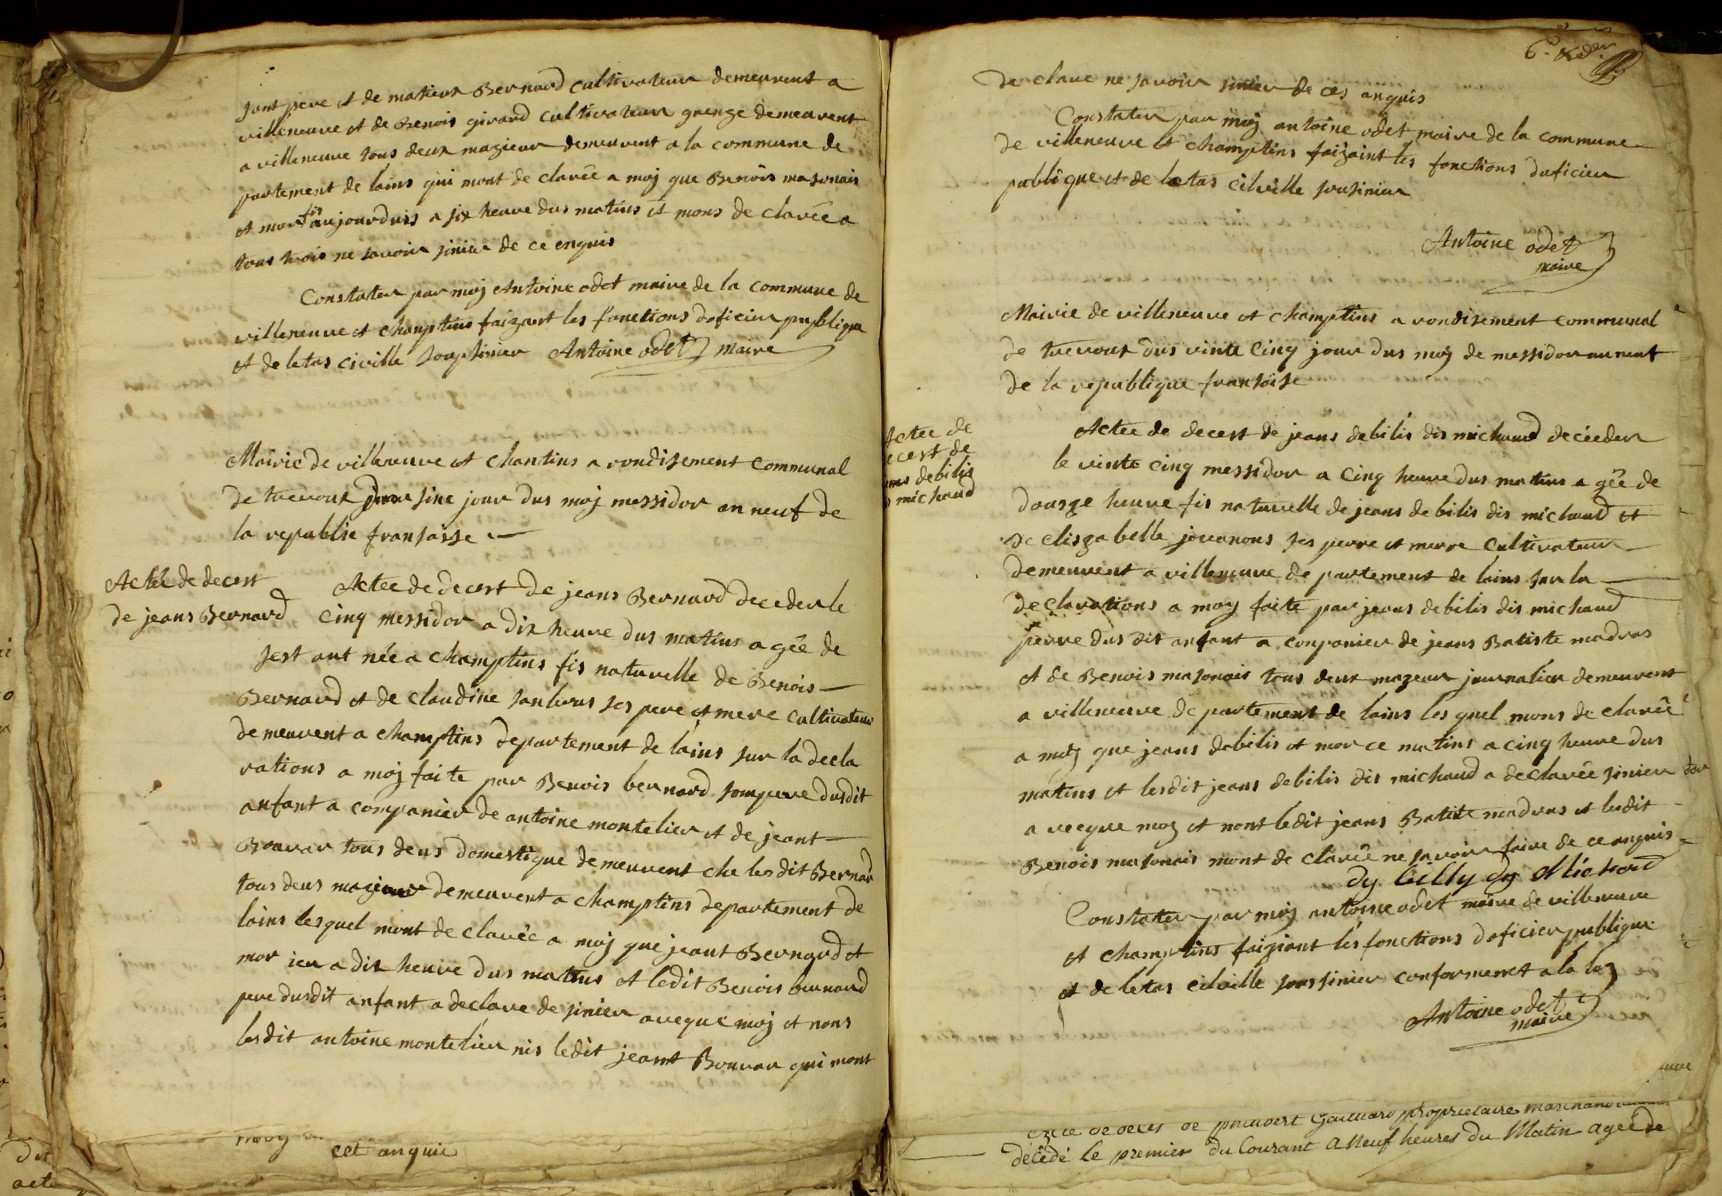 sont pere et de matieux Bernard cultivateur demeurent a
villeneuve et de Benois girard cultivateur grenge demeurent
a villeneuve tous deux magieur demeurent a la commune de
partement de lains qui mont de clarée a moj que Benois masonais
et mort aujourduis a six heure dus matins et mons de clarée a
tous trois ne savoir sinier de ce enquis
Constater par moj Antoine odet maire de la commune de
villeneuve et champtins faizant les fonctions doficier publique
et de letas civille sousinier Antoine odet maire
Mairie de villeneuve et chantins a rondisement communal
de trevoux sine jour dus moj messidor an neuf de
la republie fransaise
Actee de decest
de jeans Bernard
Actee de decest de jeans Bernard deceder le
cinq messidor a dix heure dus matins agée de
sest ant née a champtins fis naturelle de Benois
Bernard et de claudine ses pere et mere cultivateur
demeurent a champtins departement de lains sur la decla
rations a moj faite par Benois bernard som perre dusdit
anfant a companier de antoine montelier et de jeant
Bouvar tous deus domestique demeurent che lesdit Bernar
tous deus magieur demeurent a champtins departement de
lains lesquel mont de clarée a moj que jeant Bernard et
mor ier a dix heure dus matins et ledit Benois bernard
pere dusdit anfant a declare de sinier aveque moj et nons
lesdit antoine montelier nis ledit jeant Bouvar qui mont
cet anquis
6.
de clare ne savoir sinier de ces anquis
Constater par moj antoine odet maire de la commune
de villeneuve et champtins faizaint les fonctions duficier
publique et de letas cilville sousinier
Antoine odet
maire
Mairie de villeneuve et champtins a rondisement communal
de trevoux dus vinte cinq jour dus moj de messidor an neuf
de la republique fransoise
Actee de
decest de
jeans debilis
dis michaud
Actee de decest de jeans debilis dis michaud decéeder
le vinte cinq messidor a cinq heure dus matins a gée de
dousze heure fis naturelle de jeans debilis dis michaud et
de elizabelle jouanons ses perre et merre cultivateur
demeurent a villeneuve de partement de lains sur la
declarations a moy faite par jeans debilis dis michaud
perre dus dit anfant a conpanier de jeans Batiste madras
et de Benois masonais tous deux mageur journalier demeurent
a villeneuve de partement de lains les quel mons de clarée
a moj que jeans debilis et mor ce matins a cinq heure dus
matins et lesdit jeans debilis dis michaud a declarée sinier
a vecque moj et nont ledit jeans Batite madras et ledit
Benois masonais mont de clarée ne savoir faire de ce anquis
dy billy dy Michord
Constater par moj antoine odet maire de villeneuve
et champtins faiziant lés fonctions doficier publique
et de létas cilville sousinier conformemet a la loj
Antoine odet
maire
Acte de décès de Gaillard propriétaire marchand
décédé le premier du Courant a Neuf heures du Matin agée de